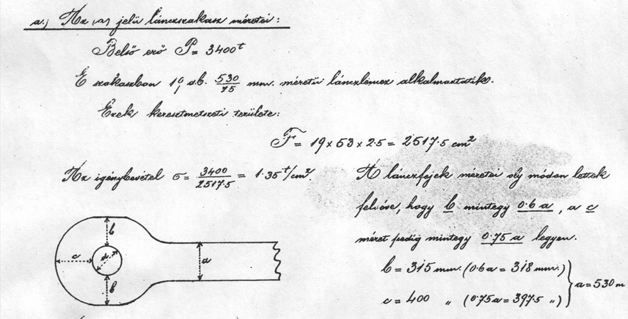 a.) Az "a" jelü lánczszakasz méretei:
Belső erő P = 3400t
E szakaszban 19 db. 530/25 mm. méretü lánczlemez alkalmaztatik.
Ezek keresztmetszeti területe:
F = 19 x 53 x 2·5 = 2517·5 cm2
Az igénybevétel σ = 3400/2517·5 = 1·35 t/cm2.
A lánczfejek méretei oly módon lettek
felvéve, hogy b mintegy 0·6 a, a c
méret pedig mintegy 0·75 a legyen.
b = 315 mm. (0·6a = 318 mm.)
c = 400 " (0·75a = 397·5 ")
a = 530 m
b
c
a
b